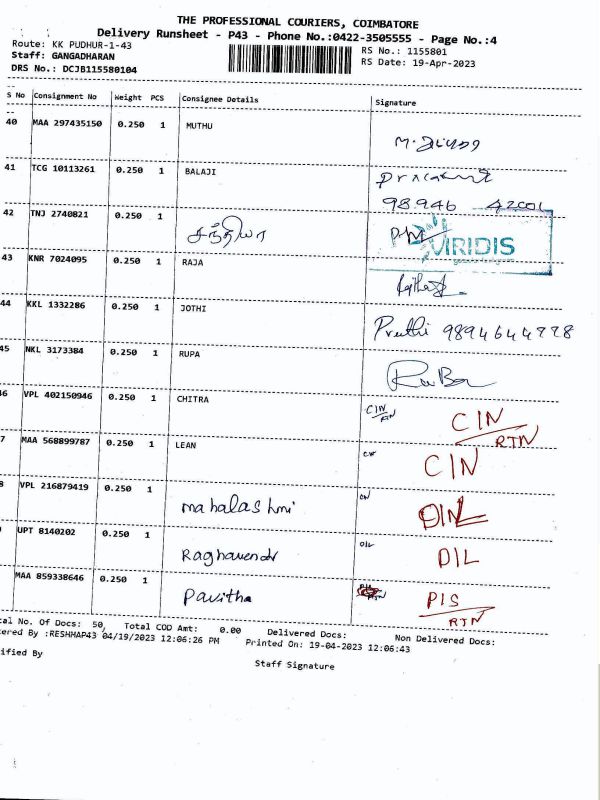 THE PROFESSIONAL COURIERS, COIMBATORE
Delivery Runsheet - P43 - Phone No.:0422-3505555 - Page No.:4
Route: KK PUDHUR-1-43 RS No.: 1155801
Staff: GANGADHARAN RS Date: 19-Apr-2023
DRS No.: DCJB115580104
S No Consignment No Weight PCS Consignee Details Signature
40 MAA 297435150 0.250 1 MUTHU
41 TCG 10113261 0.250 1 BALAJI
98946 42001
42 TNJ 2740821 0.250 1 சந்தியா
VIRIDIS
43 KNR 7024095 0.250 1 RAJA
44 KKL 1332286 0.250 1 JOTHI Pruthi 9894644778
45 NKL 3173384 0.250 1 RUPA
46 VPL 402150946 0.250 1 CHITRA CIN/RTN CIN/RTN
7 MAA 568899787 0.250 1 LEAN CIN
8 VPL 216879419 0.250 1 mahalashmi
UPT 8140202 0.250 1 Raghavendr DIL DIL
MAA 859338646 0.250 1 Pavitha PIS/RTN
tal No. Of Docs: 50, Total COD Amt: 0.00 Delivered Docs: Non Delivered Docs:
tered By :RESHHAP43 04/19/2023 12:06:26 PM Printed On: 19-04-2023 12:06:43
ified By Staff Signature